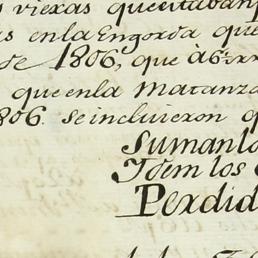 viexas que estaban
en la Engorda que
de 1806, que à 6 rr
que en la Matanza
806. se incluieron q
Suman lo
Idem los
Perdid